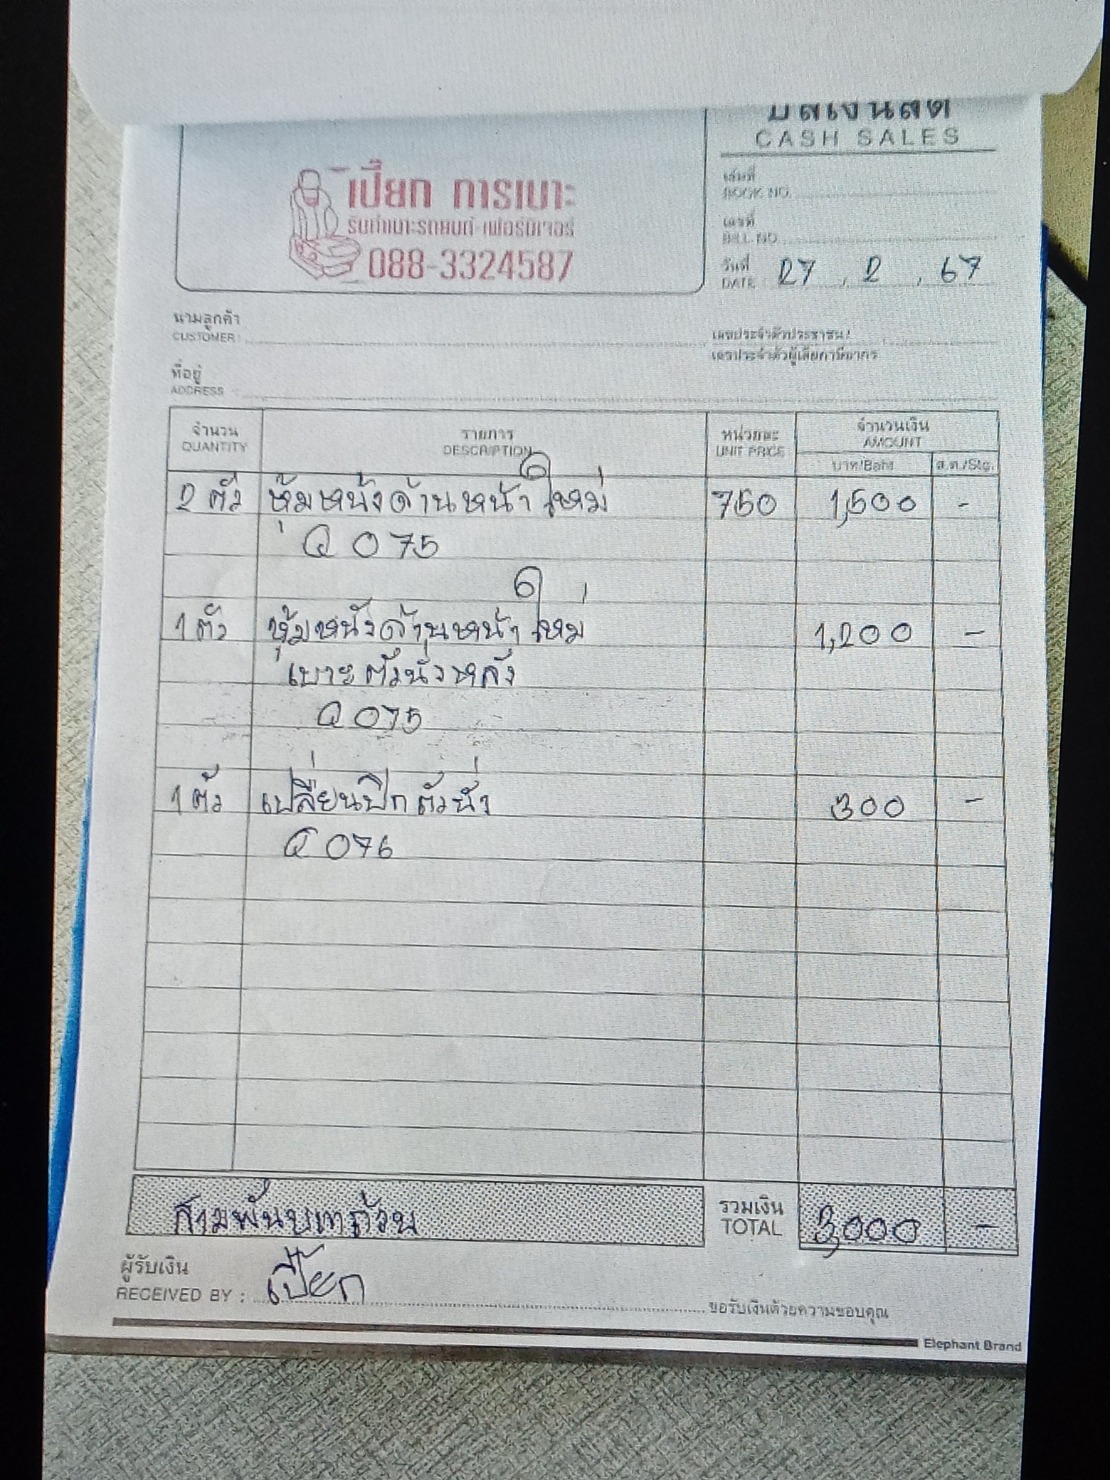 บิลเงินสด
CASH SALES
เปี๊ยก การเบาะ
รับทำเบาะรถยนต์-เฟอร์นิเจอร์
088-3324587
เล่มที่
BOOK NO.
เลขที่
BILL NO.
วันที่
DATE 27 . 2 . 67
นามลูกค้า
CUSTOMER :
เลขประจำตัวประชาชน/
เลขประจำตัวผู้เสียภาษีอากร
ที่อยู่
ADDRESS :
จำนวน รายการ หน่วยละ จำนวนเงิน
QUANTITY DESCRIPTION UNIT PRICE AMOUNT
บาท/Baht ส.ต./Stg.
2 ตัว หุ้มหนังด้านหน้าใหม่ 750 1,500 -
Q 075
1 ตัว หุ้มหนังด้านหน้าใหม่ 1,200 -
เบาะตัวนั่งหลัง
Q 075
1 ตัว เปลี่ยนปีกตัวนั่ง 300 -
Q 076
สามพันบาทถ้วน รวมเงิน 3,000 -
TOTAL
ผู้รับเงิน
RECEIVED BY : เปี๊ยก
ขอรับเงินด้วยความขอบคุณ
Elephant Brand